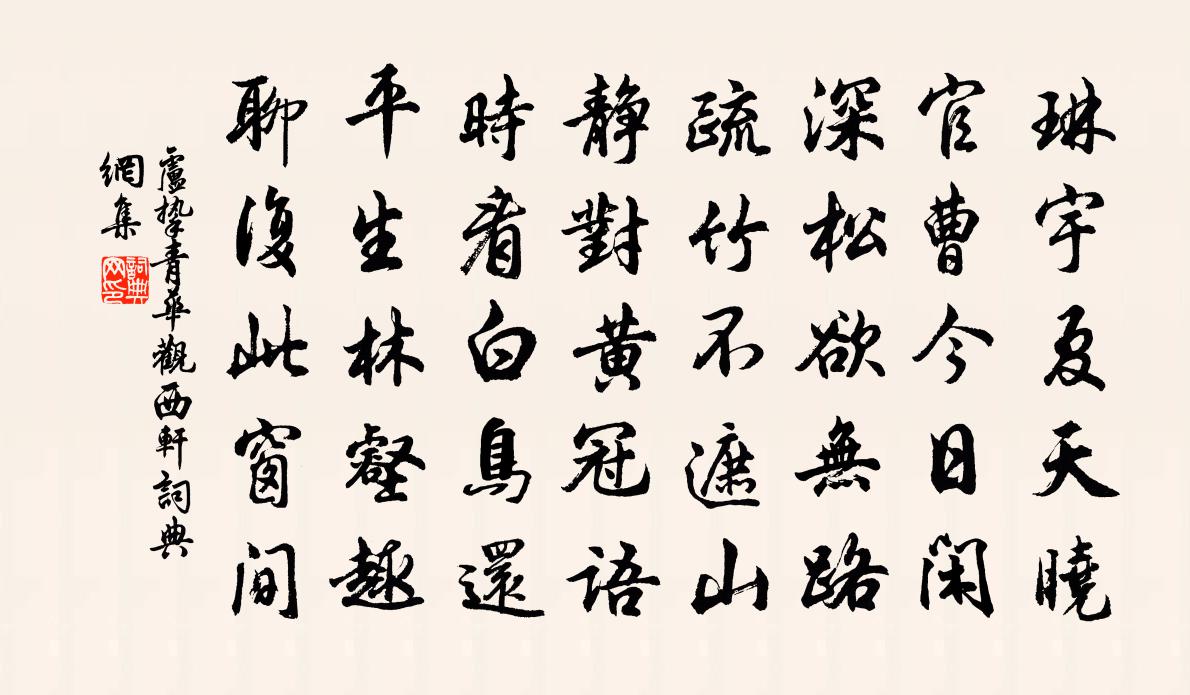 琳宇夏天曉
官曹今日閑
深松欲無路
疏竹不遮山
靜對黃冠語
時看白鳥還
平生林壑趣
聊復此窗間
盧摯青華觀西軒詞典
網集
詞典網印